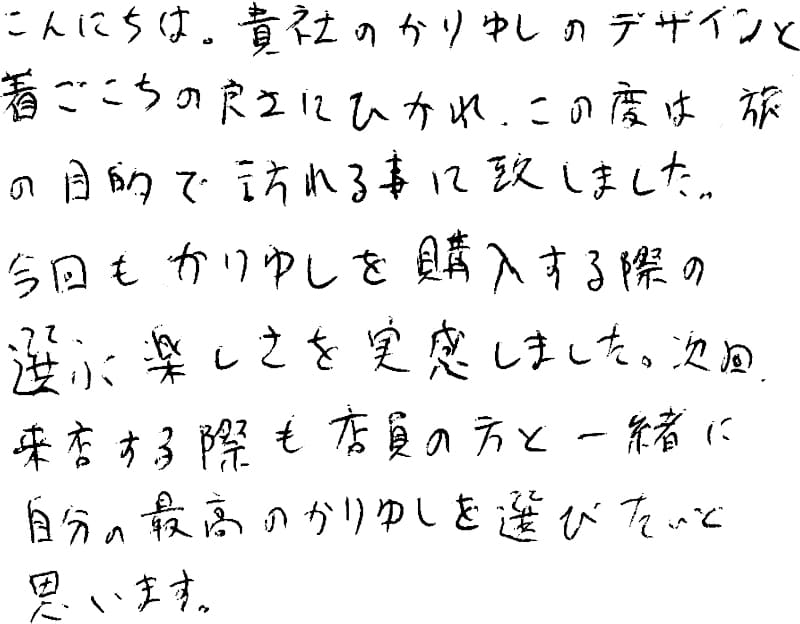 こんにちは。貴社のかりゆしのデザインと
着ごこちの良さにひかれ、この度は 旅
の目的で訪れる事に致しました。
今回もかりゆしを購入する際の
選ぶ楽しさを実感しました。次回、
来店する際も店員の方と一緒に
自分の最高のかりゆしを選びたいと
思います。